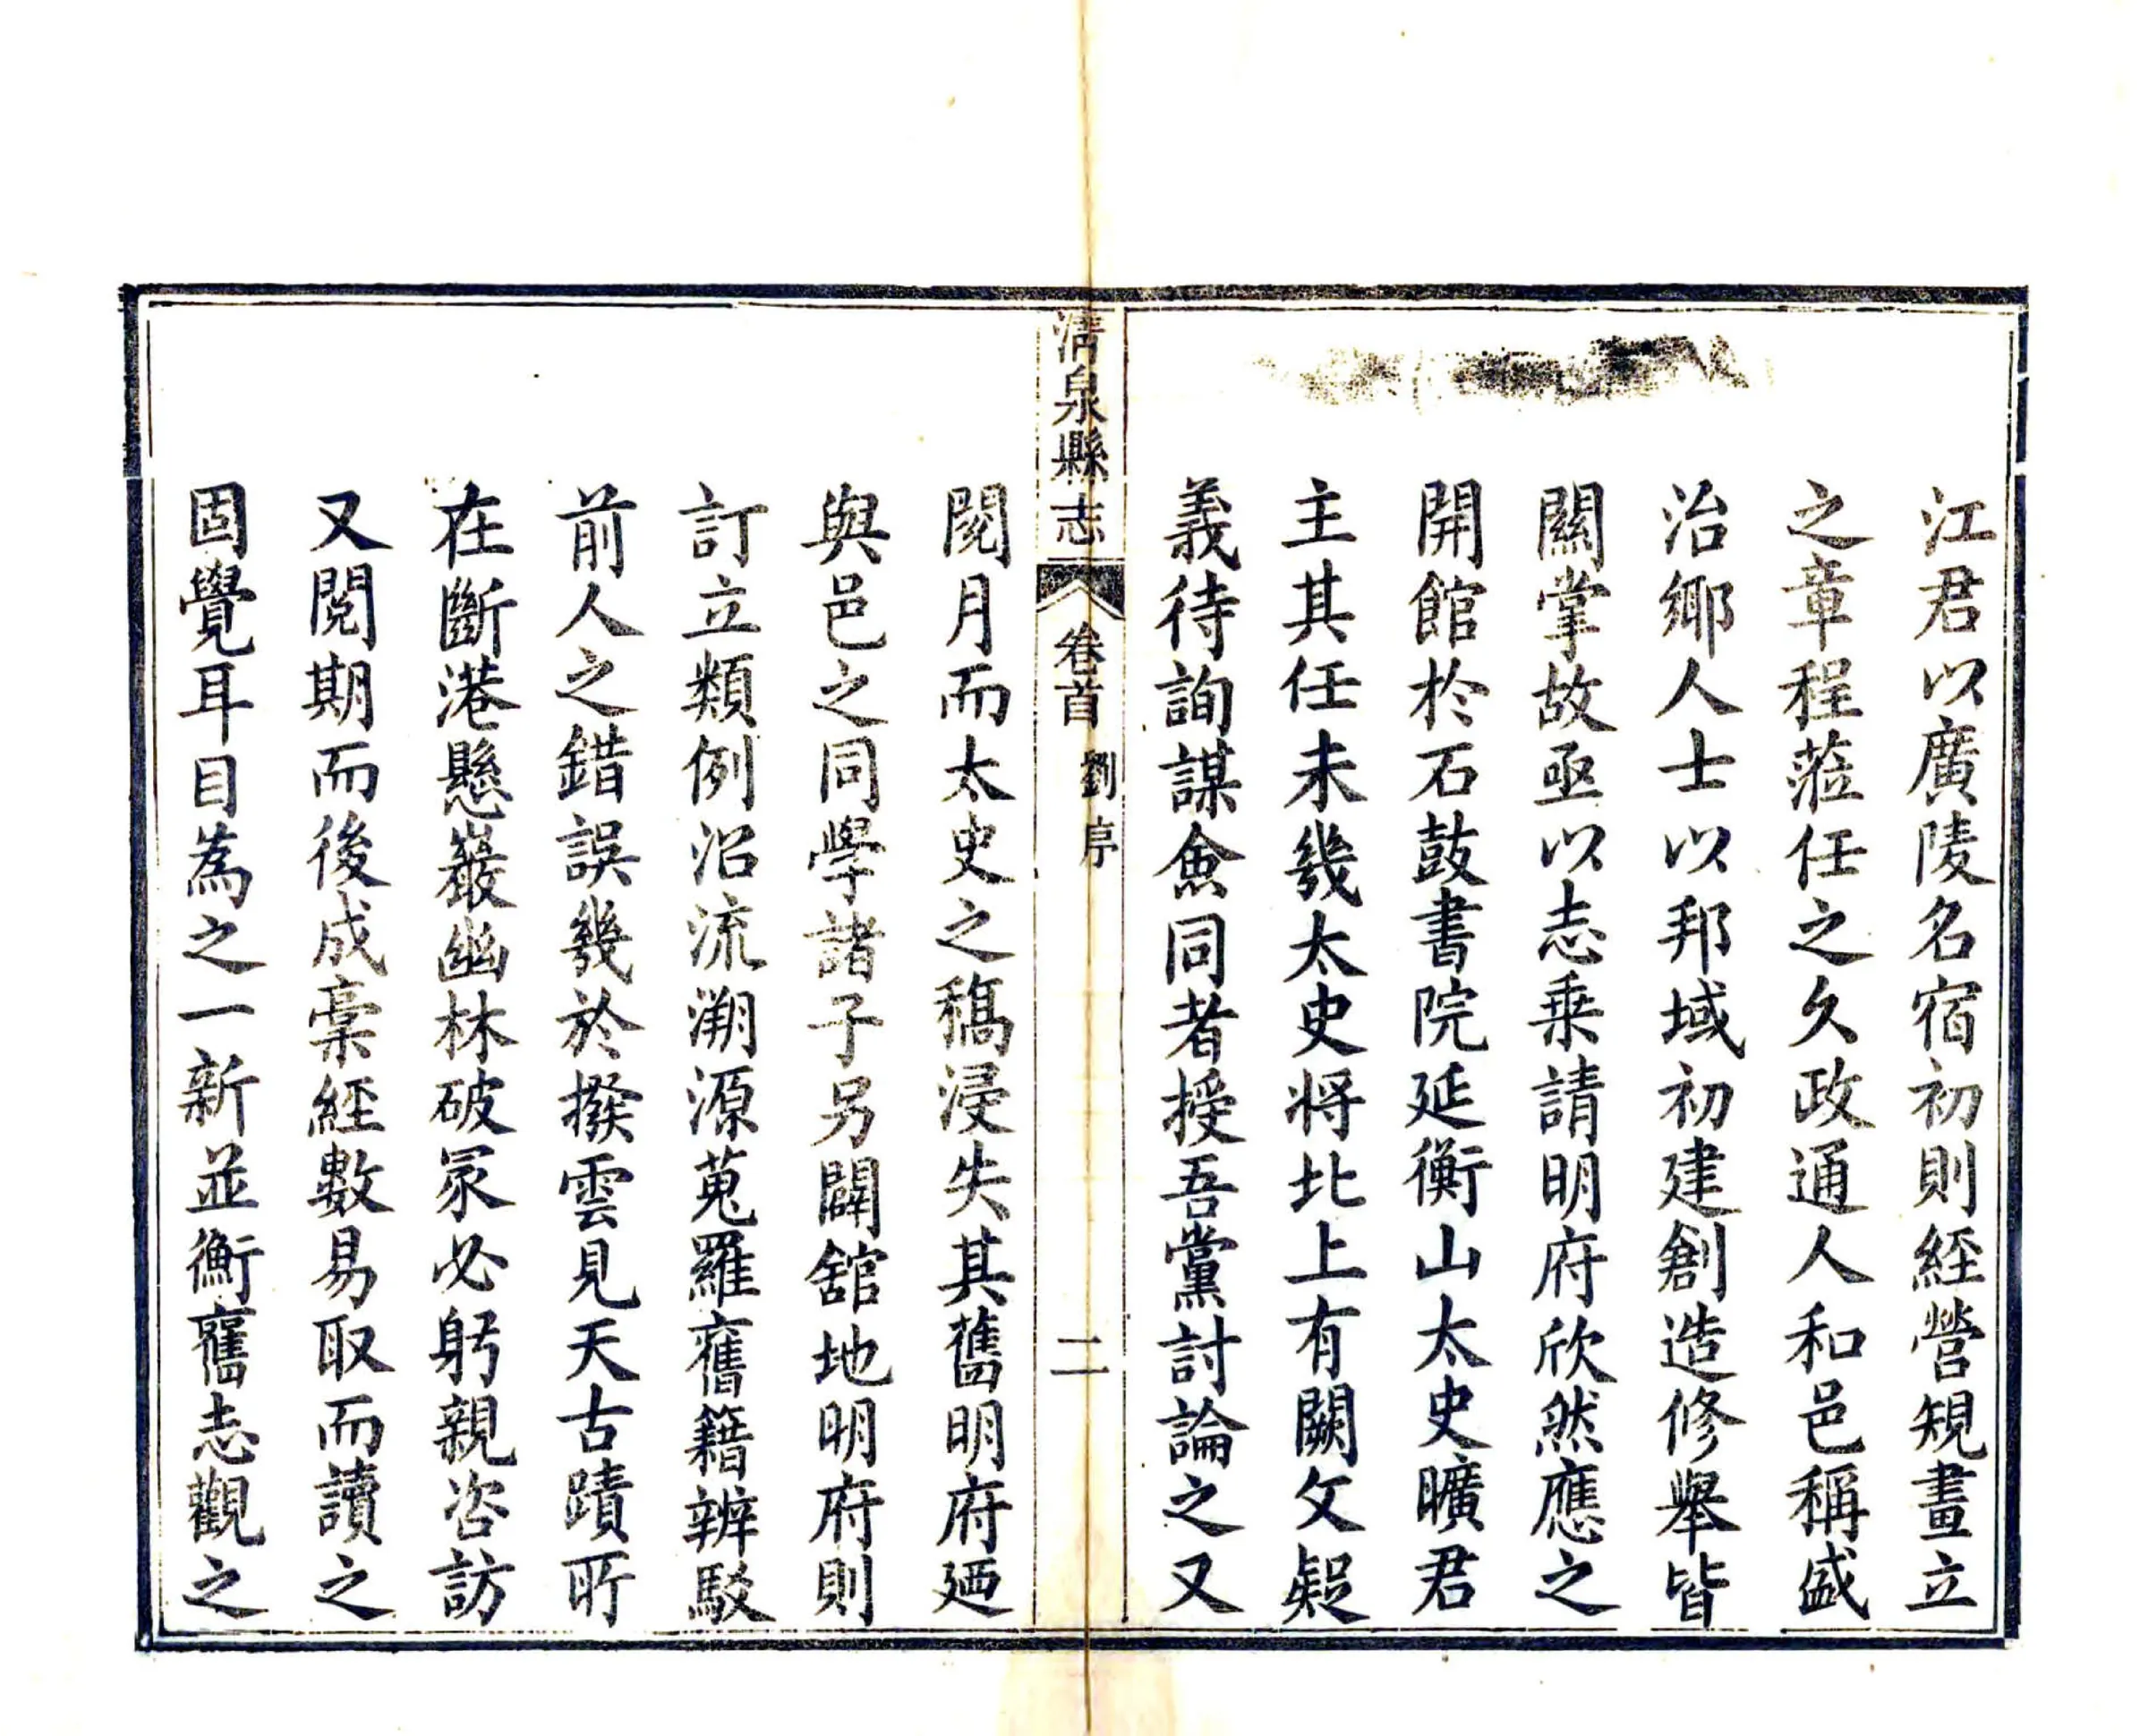 江君以廣陵名宿初則経營規畫立
之章程蒞任之久政通人和邑稱盛
治鄉人士以邦域初建創造修舉皆
關掌故亟以志乗請明府欣然應之
開館於石鼓書院延衡山太史曠君
主其任未幾太史将北上有闕文疑
義待詢謀僉同者授吾黨討論之又
閱月而太史之稿浸失其舊明府廼
與邑之同學諸子另闢舘地明府則
訂立類例沿流溯源蒐羅舊籍辨駁
前人之錯誤幾於撥雲見天古蹟所
在斷港懸巖幽林破冢必躬親咨訪
又閱期而後成稾経數易取而讀之
固覺耳目為之一新並衡舊志觀之
清泉縣志
卷首
劉序
二